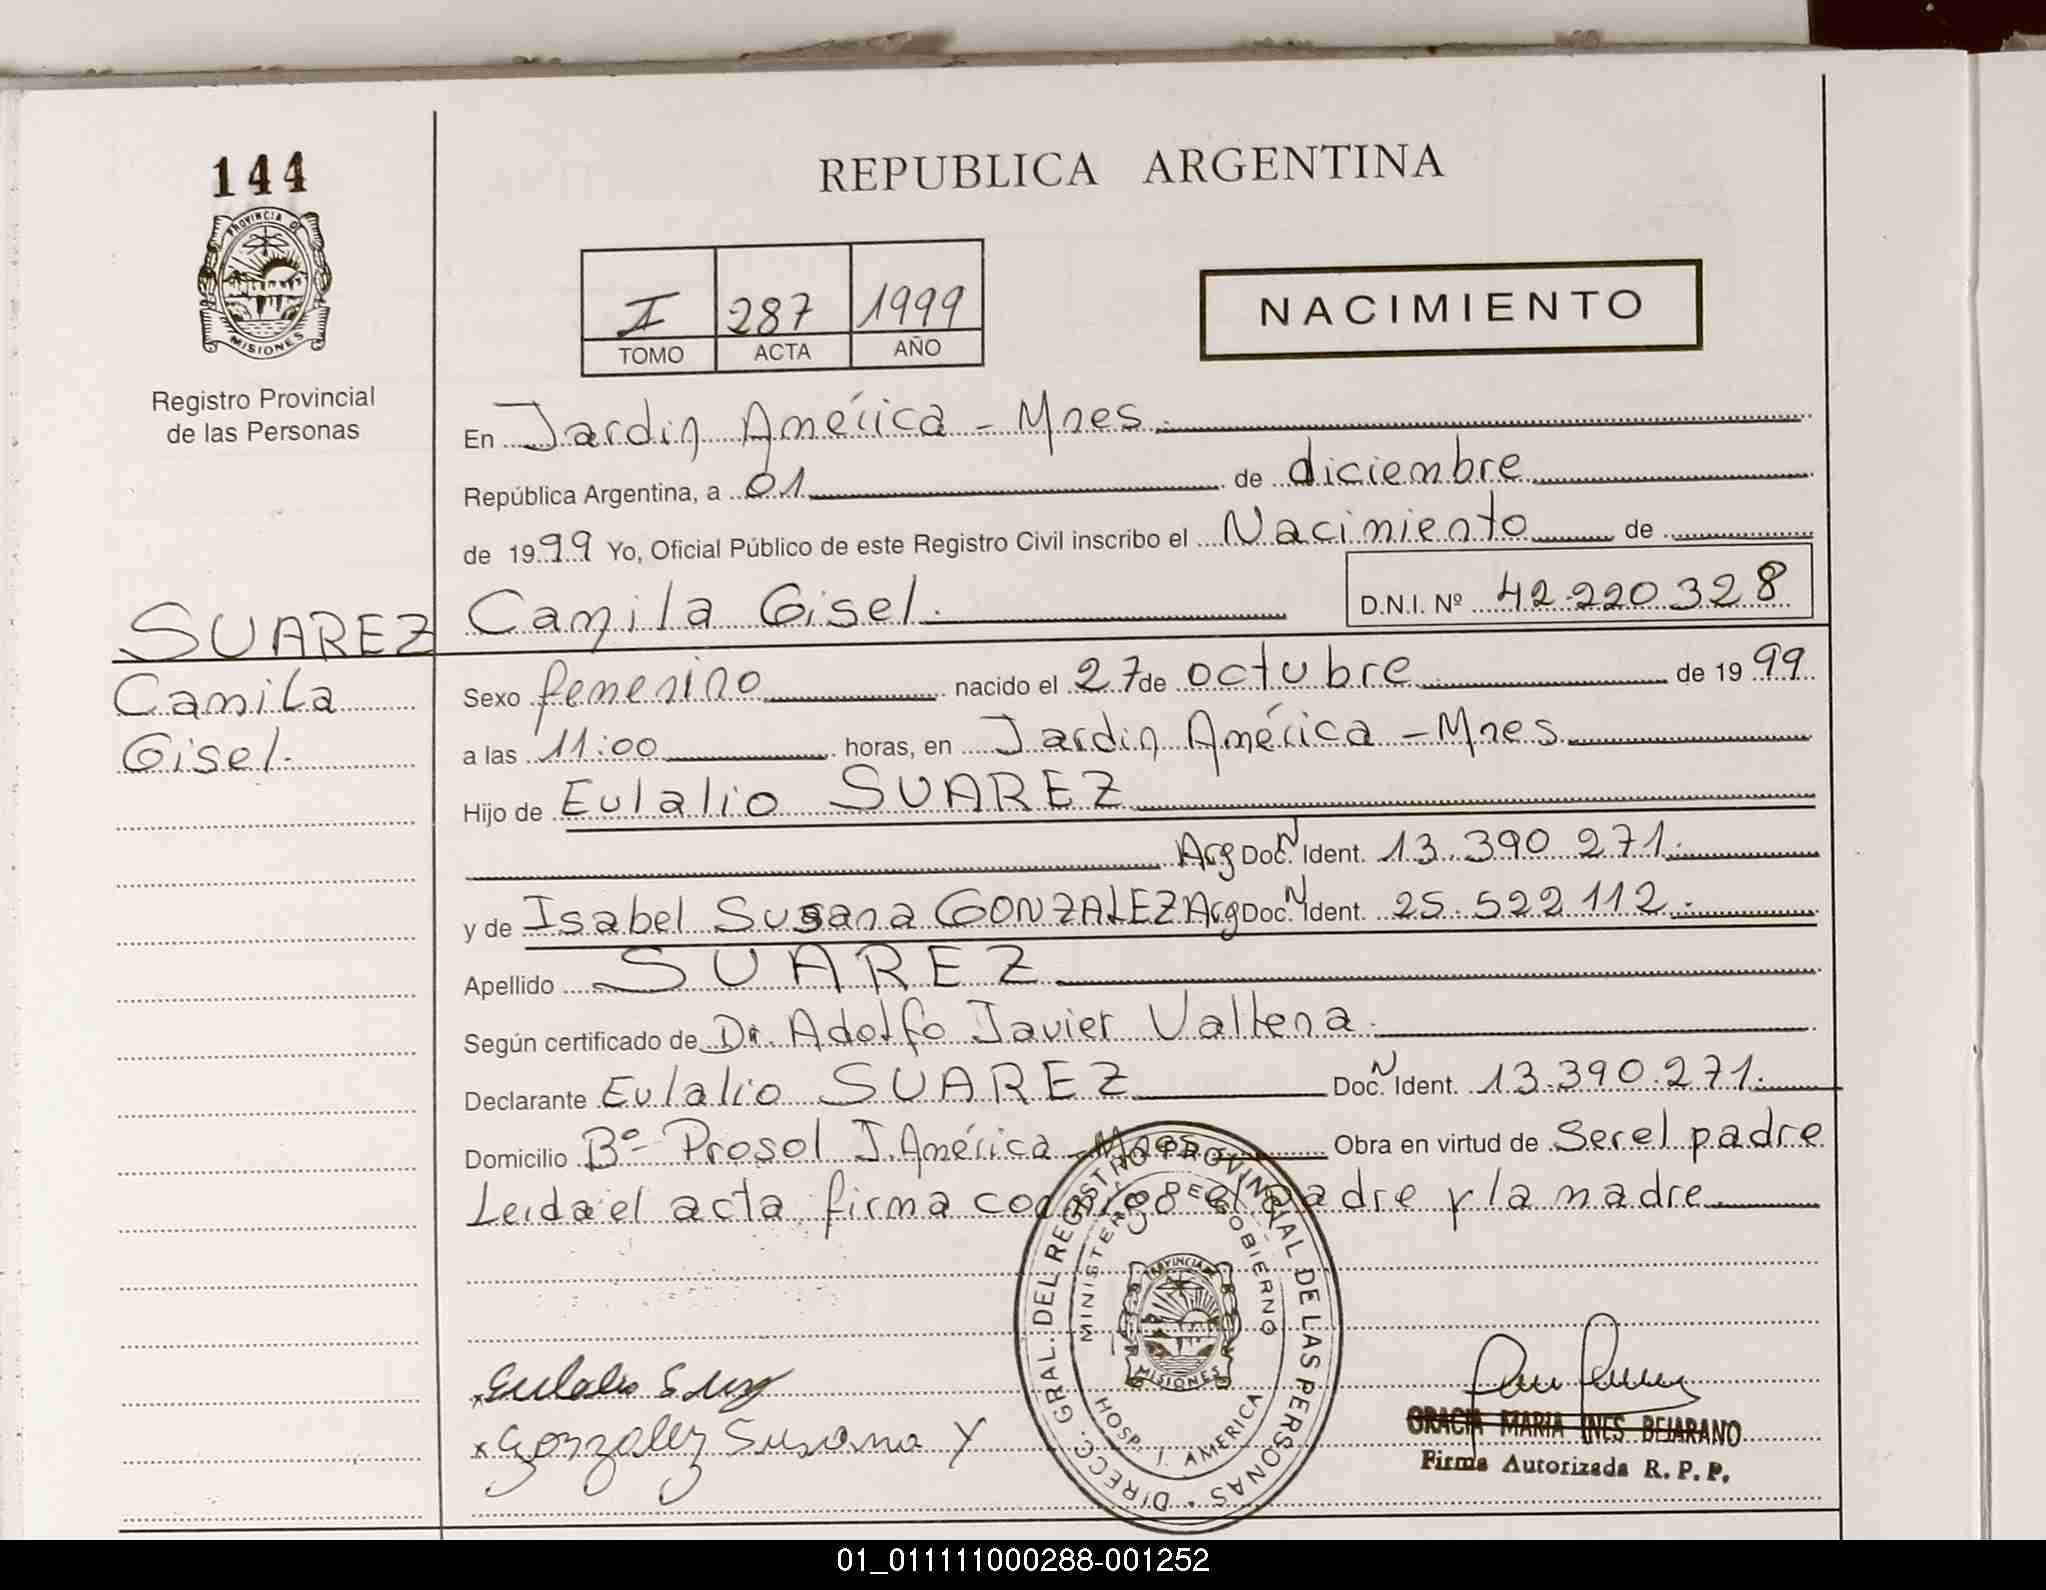 144
REPUBLICA ARGENTINA
PROVINCIA DE
MISIONES
Registro Provincial
de las Personas
I 287 1999
TOMO ACTA AÑO
NACIMIENTO
En Jardin América - Mnes.
República Argentina, a 01 de diciembre
de 1999 Yo, Oficial Público de este Registro Civil inscribo el Nacimiento de
Camila Gisel. D.N.I. Nº 42.220.328
SUAREZ
Camila
Gisel.
Sexo femenino nacido el 27 de octubre de 1999
a las 11:00 horas, en Jardin América - Mnes.
Hijo de Eulalio SUAREZ
Arg Doc. N Ident. 13.390.271.
y de Isabel Susana GONZALEZ Arg Doc. N Ident. 25.522.112.
Apellido SUAREZ
Según certificado de Dr. Adolfo Javier
Declarante Eulalio SUAREZ Doc. N Ident. 13.390.271.
Domicilio Bº Prosol J. América - Mnes Obra en virtud de Ser el padre
Leida el acta firma conmigo el padre y la madre
DIRECC. GRAL. DEL REGISTRO PROVINCIAL DE LAS PERSONAS
MINISTERIO DE GOBIERNO
PROVINCIA DE
MISIONES
HOSP. J. AMERICA
x Eulalio
x Gonzalez Susana Y
GRACIA MARIA INES BEJARANO
Firma Autorizada R. P. P.
01_011111000288-001252